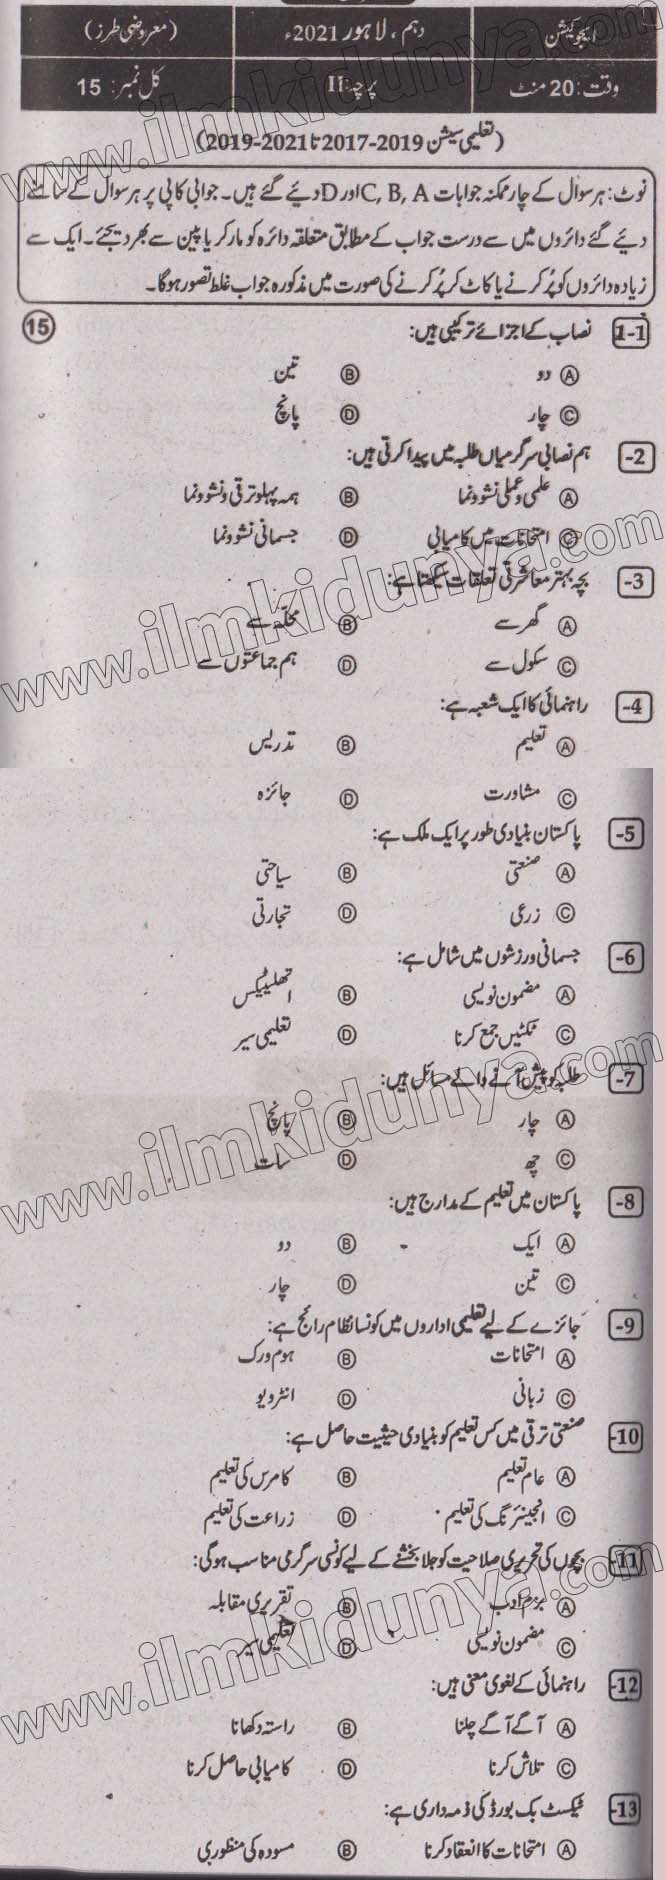 ایجوکیشن دہم ، لاہور 2021ء (معروضی طرز)
وقت: 20 منٹ پرچہ: II کل نمبر: 15
(تعلیمی سیشن 2019-2017 تا 2021-2019)
نوٹ: ہر سوال کے چار ممکنہ جوابات C, B, A اور D دیئے گئے ہیں۔ جوابی کاپی پر ہر سوال کے سامنے
دیئے گئے دائروں میں سے درست جواب کے مطابق متعلقہ دائرہ کو مارکر یا پین سے بھر دیجئے۔ ایک سے
زیادہ دائروں کو پُر کرنے یا کاٹ کر پُر کرنے کی صورت میں مذکورہ جواب غلط تصور ہوگا۔
1-1 نصاب کے اجزائے ترکیبی ہیں: 15
A دو B تین
C چار D پانچ
2- ہم نصابی سرگرمیاں طلبہ میں پیدا کرتی ہیں:
A علمی و عملی نشوونما B ہمہ پہلو ترقی و نشوونما
C امتحانات میں کامیابی D جسمانی نشوونما
3- بچہ بہتر معاشرتی تعلقات سیکھتا ہے:
A گھر سے B محلّہ سے
C سکول سے D ہم جماعتوں سے
4- راہنمائی کا ایک شعبہ ہے:
A تعلیم B تدریس
C مشاورت D جائزہ
5- پاکستان بنیادی طور پر ایک ملک ہے:
A صنعتی B سیاحتی
C زرعی D تجارتی
6- جسمانی ورزشوں میں شامل ہے:
A مضمون نویسی B اتھلیٹکس
C ٹکٹیں جمع کرنا D تعلیمی سیر
7- طلبہ کو پیش آنے والے مسائل ہیں:
A چار B پانچ
C چھ D سات
8- پاکستان میں تعلیم کے مدارج ہیں:
A ایک B دو
C تین D چار
9- جائزے کے لیے تعلیمی اداروں میں کونسا نظام رائج ہے:
A امتحانات B ہوم ورک
C زبانی D انٹرویو
10- صنعتی ترقی میں کس تعلیم کو بنیادی حیثیت حاصل ہے:
A عام تعلیم B کامرس کی تعلیم
C انجینئرنگ کی تعلیم D زراعت کی تعلیم
11- بچوں کی تحریری صلاحیت کو جلا بخشنے کے لیے کونسی سرگرمی مناسب ہوگی:
A بزم ادب B تقریری مقابلہ
C مضمون نویسی D تعلیمی سیر
12- راہنمائی کے لغوی معنی ہیں:
A آگے آگے چلنا B راستہ دکھانا
C تلاش کرنا D کامیابی حاصل کرنا
13- ٹیکسٹ بک بورڈ کی ذمہ داری ہے:
A امتحانات کا انعقاد کرنا B مسودہ کی منظوری
www.ilmkidunya.com
www.ilmkidunya.com
www.ilmkidunya.com
www.ilmkidunya.com